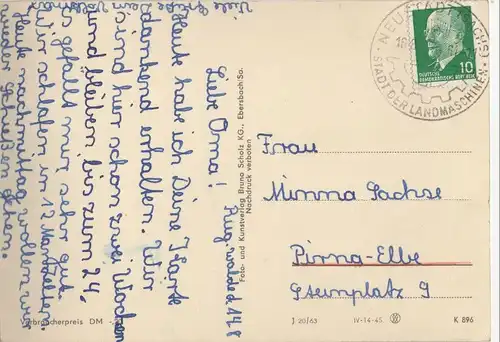 Rug. walde d 14.8
Liebe Oma!
Heute habe ich Deine Karte
dankend erhalten. Wir
sind hier schon zwei Wochen
und bleiben bis zum 24.
Es gefällt mir sehr gut.
Wir schlafen in 12 Mannzelten.
Heute nachmittag wollen wir
wieder schießen gehen.
Viele Grüße
Dein Volkmar
Foto- und Kunstverlag Bruno Scholz KG., Ebersbach/Sa.
Nachdruck verboten
NEUSTADT (SACHS)
STADT DER LANDMASCHINEN
10
DEUTSCHE
DEMOKRATISCHE REPUBLIK
Frau
Mimma Sachse
Pirna-Elbe
Gsemplatz 9
Verbraucherpreis DM
J 20/63 IV-14-45 K 896